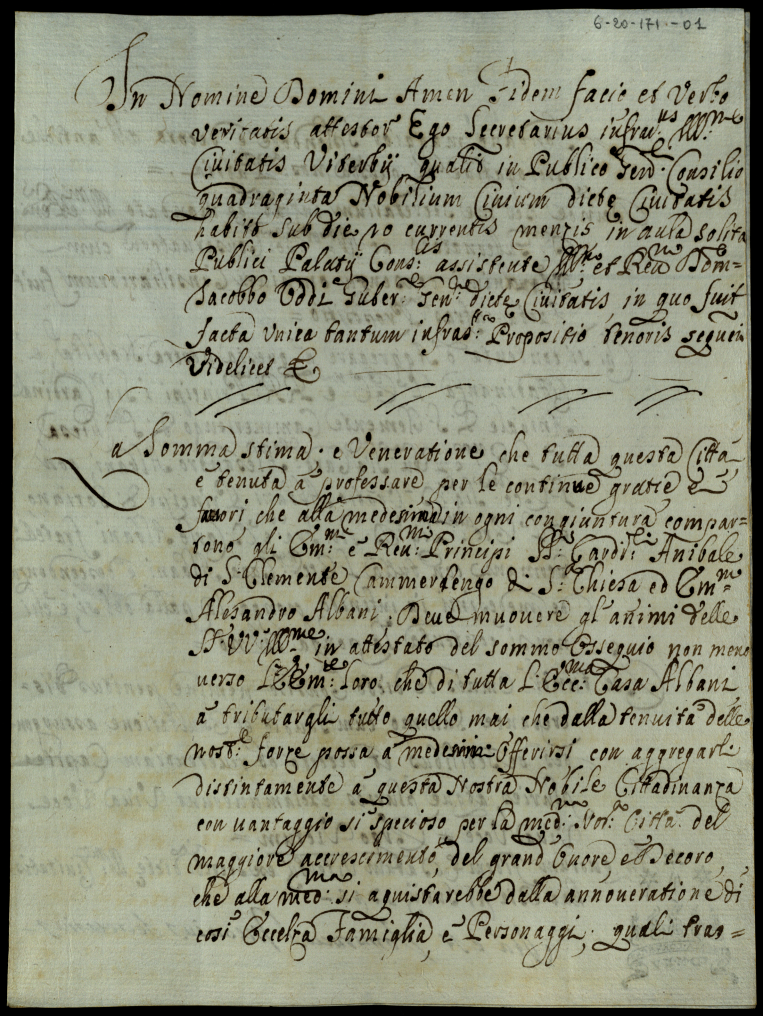 6-20-171-01
In Nomine Domini Amen Fidem facio et Verbo
veritatis attestor Ego Secretarius infrar:us Ill:me
Civitatis Viterbij qualit in Publico Gen: Consilio
quadraginta Nobilium Civium dicte Civitatis
habito sub die 10 currentis mensis in aula solita
Publici Palatij Cons:lis assistente Ill:mo et Reu:mo Dom=
Jacobbo Oddi Guber:e Gen:le dicte Civitatis, in quo fuit
facta unica tantum infras:a Propositio tenoris sequen
Videlicet &
La Somma stima, e Veneratione che tutta questa Città
è tenuta à professare per le continue gratie e
fauori che alla medesima in ogni congiuntura compar=
tono gli Em:mi e Reu:mi Principi SS:ri Card:li Anibale
di S: Clemente Cammerlengo di S: Chiesa ed Em:mo
Alesandro Albani; Deue muouere gl'animi delle
SS: VV: Ill:me in attestato del sommo Ossequio non meno
verso l'Em:ze loro, che di tutta l'Ecc:ma Casa Albani
à tributargli tutto quello mai che dalla tenuità delle
nost:e forze possa à medesimi Offerirsi con aggregarli
distintamente à questa Nostra Nobile Cittadinanza
con vantaggio si specioso per la med:ma Nos:a Città del
maggiore accrescimento, del grand'Onore e Decoro,
che alla med:ma si aquistarebbe dalla annoveratione di
cosi Eccelza Famiglia, e Personaggi, quali tras=